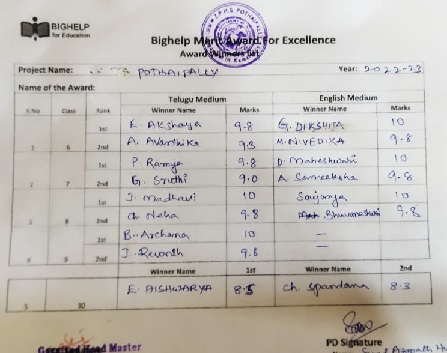 BIGHELP
for Education
Bighelp Merit Award For Excellence
Award Winners list
Project Name: POTHAIPALLY Year: 2022-23
Name of the Award:
Telugu Medium English Medium
S.No Class Rank Winner Name Marks Winner Name Marks
1st E. Akshaya 9.8 G. DIKSHITA 10
1 6 2nd A. Avanthika 9.8 M.N.VEDIKA 9.8
1st P. Ramya 9.8 D. Maheshwari 10
2 7 2nd G. Sruthi 9.0 A. Sameeksha 9.8
1st J. Madhavi 10 Soujanya 10
3 8 2nd Ch. Neha 9.8 Bhuvaneshwari 9.8
1st B. Archana 10 —
4 9 2nd J. Revanth 9.8 —
Winner Name 1st Winner Name 2nd
5 10 E. AISHWARYA 8.5 Ch. Spandana 8.3
Head Master
PD Signature